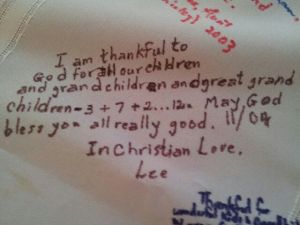 2003
I am thankful to
God for all our children
and grandchildren and great grand
children - 3 + 7 + 2...12= May, God
bless you all really good. 11/09
In Christian Love,
Lee
Thankful for
wonderful